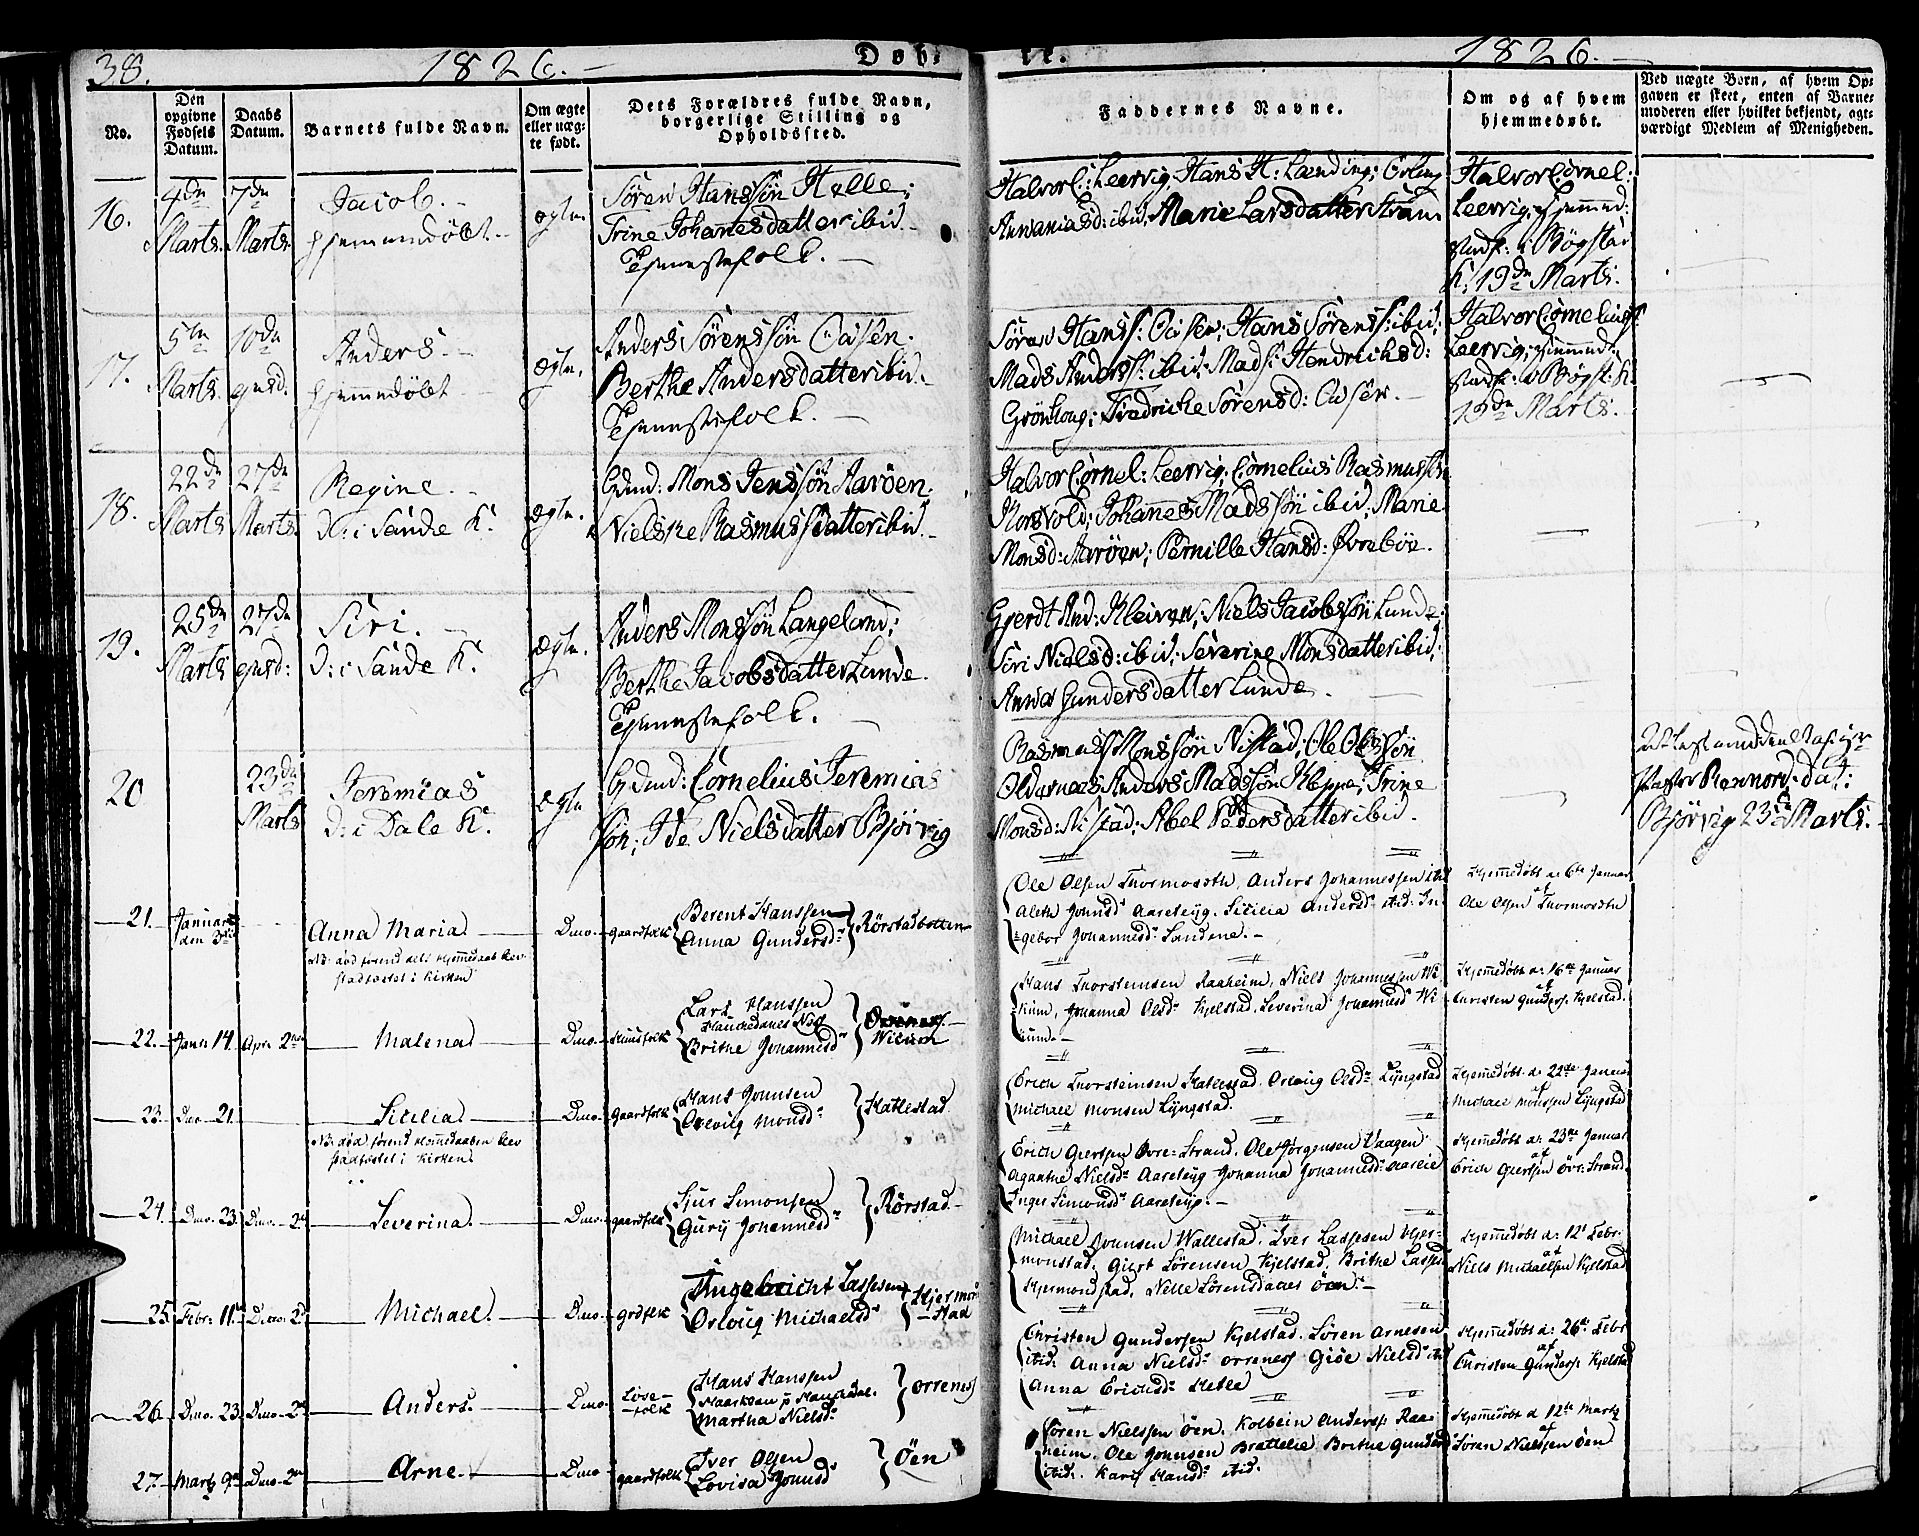 38. 1826. Døb- te. 1826.
No.
Den opgivne Fødsels Datum.
Daabs Datum.
Barnets fulde Navn.
Om ægte eller uægte født.
Dets Forældres fulde Navn, borgerlige Stilling og Opholdssted.
Faddernes Navne.
Om og af hvem hjemmedøbt.
Ved uægte Børn, af hvem Opgaven er skeet, enten af Barnemoderen eller hvilket bekjendt, agtværdigt Medlem af Menigheden.
16. 4de Marts. 7de Marts.
Jacob.
hjemmedøbt
ægte.
Søren Hanssøn Helle;
Trine Johanesdatter ibid.
Tjenestefolk.
Halvor C: Leervig, Hans H: Lænding;
Ananiasd: ibid, Marie Larsdatter Strand
Halvor Cornel:
Leervig, hjemmed:
stadf: i Bøgstad
K. 19de Marts.
17. 5te Marts. 10de ejusd.
Anders.
hjemmedøbt
ægte.
Anders Sørenssøn
Berthe Andersdatter ibid.
Tjenestefolk.
Søren Hanss: Hans Sørenss: ibid;
Mads Anderss: ibid; Mads: Hendrichsd:
Fredriche Sørensd:
Halvor Cornelius:
Leervig; hjemmed:
stadf: i Bøgst: K.
19de Marts.
18. 22de Marts 27de Marts.
Regine.
D: i Sande K.
ægte.
Gdmd: Mons Jenssøn Aarøen.
Nielske Rasmussdatter ibid.
Halvor Cornel: Leervig; Cornelius Rasmussøn
Johannes Madssøn ibid; Marie
Monsd: Aarøen; Pernille Hansd: Øvrebøe.
19. 25de Marts 27de ejusd:
Siri.
D: i Sande K.
ægte.
Anders Monssøn Langeland;
Berthe Jacobsdatter Lunde.
Tjenestefolk.
Gjerdt And: Kleiven; Niels Jacobssøn Lunde;
Siri Nielsd: ibid; Severine Monsdatter ibid;
Anna Gundersdatter Lunde.
20 23de Marts
Jeremias
D: i Dale K.
ægte
Gdmd: Cornelius Jeremias
søn; Ide Nielsdatter Bjørvig
Rasmuss Monssøn Nistad; Ole Olssøn
Anders Madssøn Kleppe; Trine
Monsd: Nistad; Abel Pedersdatter ibid.
Pastor Rennord. dat:
Bjørvig 23de Marts.
21. Januar den 3die
Anna Maria
Nb. død førend dets Hjemedaab blev
stadfæstet i kirken
Dmo. gaardfolk
Berent Hanssen
Anna Gundersd: Rørstadbotten
Ole Olsen Thormodsth, Anders Johannessen ibid
Aleth Jonnsd: Aareteig. Sicilia Andersd: ibid. In-
gebor Johannesd: Sandene.
Hjemedøbt d: 6te Januar
af
Ole Olsen Thormodsth
22. Janr 14 Apr. 2den
Malena
Dmo. Huusfolk
Lars Hanssen
Brithe Johannesd: Wiium
Hans Thorsteinsen Raaheim, Niels Johannessen Wi-
kum, Johanna Olsd: Kjelstad, Severina Johannesd: Wi-
kum.
Hjemedøbt d: 16de Januar
af
Christen Gunders: Kjelstad.
23. Dmo 21.
Sicilia
Nb: død førend Hjemedaaben blev
stadfæstet i kirken
Dmo. gaardfolk
Hans Jonnsen
Orloug Monsd: Hatlestad
Erich Thorsteinsen Hatlestad, Orloug Olsd: Lyngstad
Michael Monsen Lyngstad.
Hjemedøbt d: 22de Januar
af
Michael Monssen Lyngstad
24. Dmo. 23. Dmo. 2d
Severina.
Dmo. gaardfolk
Sjur Simonsen
Gury Johannesd: Rørstad.
Erich Giertsen Øvre-Strand. Ole Jørgensen Vaagen
Agaathe Nielsd: Aareteig Johanna Johannesd: Aareteig
Inger Simonsd: Aareteig.
Hjemedøbt d: 23de Januar
af
Erich Giertsen Øvr: Strand.
25. Febr. 11te Dmo. 2d
Michael.
Dmo. grdfolk
Ingebricht Lassesen
Orloug Michaelsd: Hjermonstad
Michael Jonnsen Wallestad, Iver Lassesen Hjer-
monstad, Giert Sørensen Kjelstad, Brithe Lassesd
Hjermonstad, Nille Sørensdatter Øen.
Hjemedøbt d: 12t Febr.
af
Niels Michaelsen Kjelstad
26. Dmo. 23. Dmo. 2d
Anders.
Dmo.
Hans Hanssen
Martha Nielsd: Orrenes
Christen Gundersen Kjelstad. Søren Arnesen
ibid. Anna Nielsd: Orrenes Giøe Nielsd: ibid
Anna Erichsd: Hetle
Hjemedøbt d: 26de Febr
af
Christen Gunders: Kjelstad
27. Marts 9de Dmo. 2d
Arne.
Dmo gaardfolk
Iver Olsen
Lovisa Jonnsd: Øen
Søren Nielssen Øen, Kolbein Anders: Raa-
heim. Ole Jonnsen Brattelie, Brithe Gundersd
ibid. Kari Hansd: ibid.
Hjemedøbt d 12te Marts
af
Søren Nielssen Øen